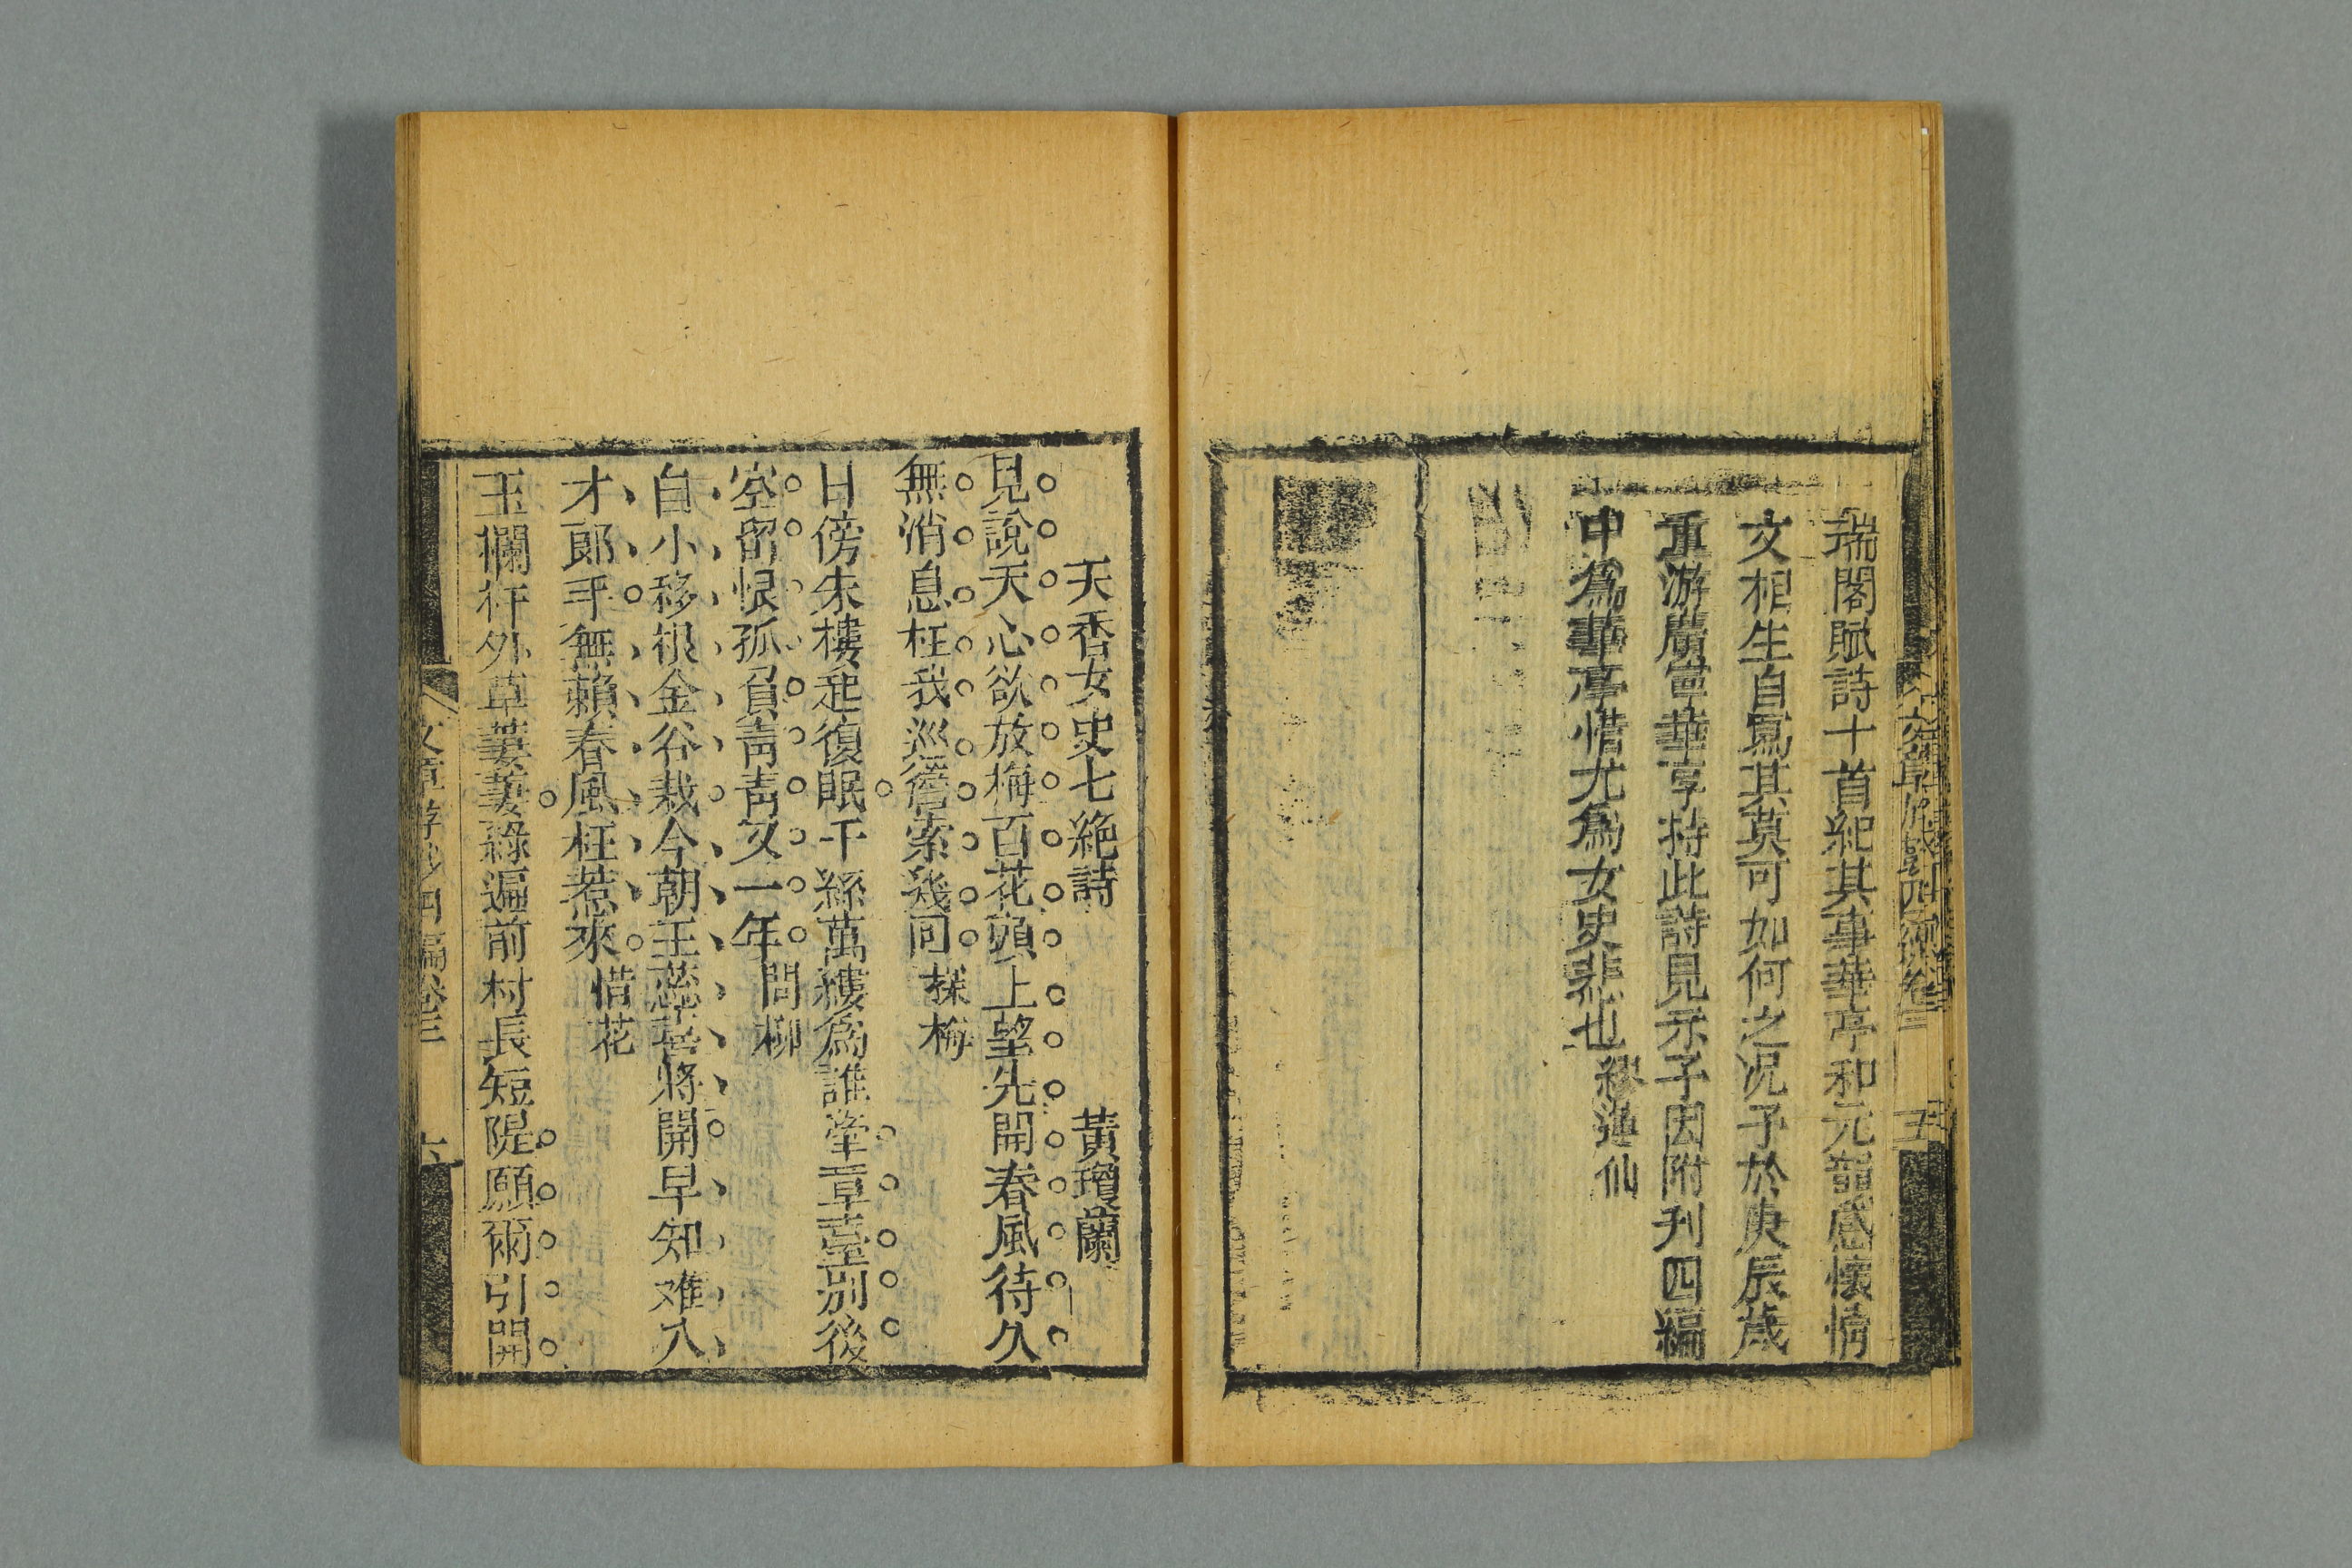 瑞閣賦詩十首紀其事華亭和元韻感懷情
文相生自寫其莫可如何之况予於庚辰歲
重游廣寧華亭持此詩見示予因附刊四編
中爲華亭惜尤爲女史悲也繆蓮仙
五
天香女史七絶詩 黃瓊蘭
見說天心欲放梅百花頭上望先開春風待久
無消息枉我巡簷索幾回探梅
日傍朱樓起復眠千絲萬縷爲誰牽章臺別後
空留恨孤負靑靑又一年問柳
自小移根金谷栽今朝玉蕊喜將開早知难入
才郎手無賴春風枉惹來惜花
玉欄杆外草萋萋綠遍前村長短隄願爾引開
文章游戲四編卷三 六